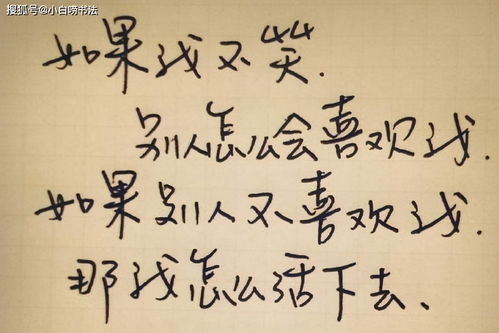 搜狐号@小白唠书法
如果我不笑.
别人怎么会喜欢我.
如果别人不喜欢我.
那我怎么活下去、